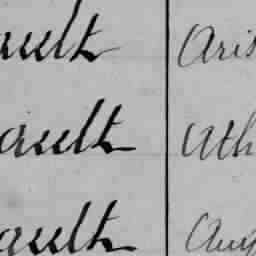 ault Aris
ault Ath
ault Aug